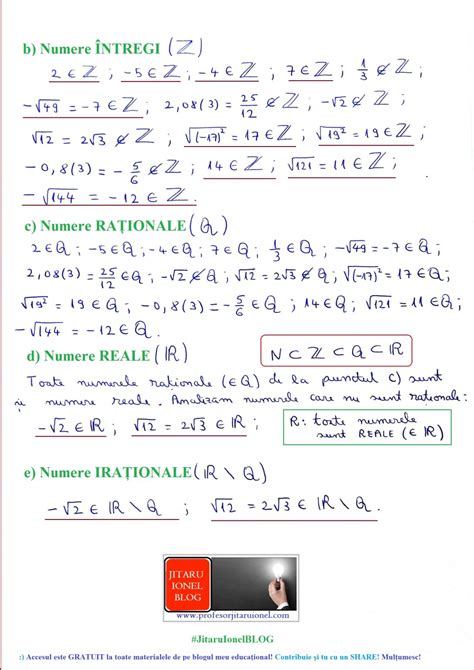 b) Numere ÎNTREGI (ℤ)
2 ∈ ℤ ; -5 ∈ ℤ ; -4 ∈ ℤ ; 7 ∈ ℤ ; 1/3 ∉ ℤ ;
-√49 = -7 ∈ ℤ ; 2,08(3) = 25/12 ∉ ℤ ; -√2 ∉ ℤ ;
√12 = 2√3 ∉ ℤ ; √(-17)² = 17 ∈ ℤ ; √19² = 19 ∈ ℤ ;
-0,8(3) = -5/6 ∉ ℤ ; 14 ∈ ℤ ; √121 = 11 ∈ ℤ ;
-√144 = -12 ∈ ℤ.
c) Numere RAȚIONALE (ℚ)
2 ∈ ℚ ; -5 ∈ ℚ ; -4 ∈ ℚ ; 7 ∈ ℚ ; 1/3 ∈ ℚ ; -√49 = -7 ∈ ℚ ;
2,08(3) = 25/12 ∈ ℚ ; -√2 ∉ ℚ ; √12 = 2√3 ∉ ℚ ; √(-17)² = 17 ∈ ℚ ;
√19² = 19 ∈ ℚ ; -0,8(3) = -5/6 ∈ ℚ ; 14 ∈ ℚ ; √121 = 11 ∈ ℚ ;
-√144 = -12 ∈ ℚ.
d) Numere REALE (ℝ)
ℕ ⊂ ℤ ⊂ ℚ ⊂ ℝ
Toate numerele raționale (∈ ℚ) de la punctul c) sunt
și numere reale. Analizăm numerele care nu sunt raționale:
-√2 ∈ ℝ ; √12 = 2√3 ∈ ℝ ;
ℝ: toate numerele
sunt REALE (∈ ℝ)
e) Numere IRAȚIONALE (ℝ \ ℚ)
-√2 ∈ ℝ \ ℚ ; √12 = 2√3 ∈ ℝ \ ℚ
JITARU
IONEL
BLOG
www.profesorjitaruionel.com
#JitaruIonelBLOG
:) Accesul este GRATUIT la toate materialele de pe blogul meu educațional! Contribuie și tu cu un SHARE! Mulțumesc!